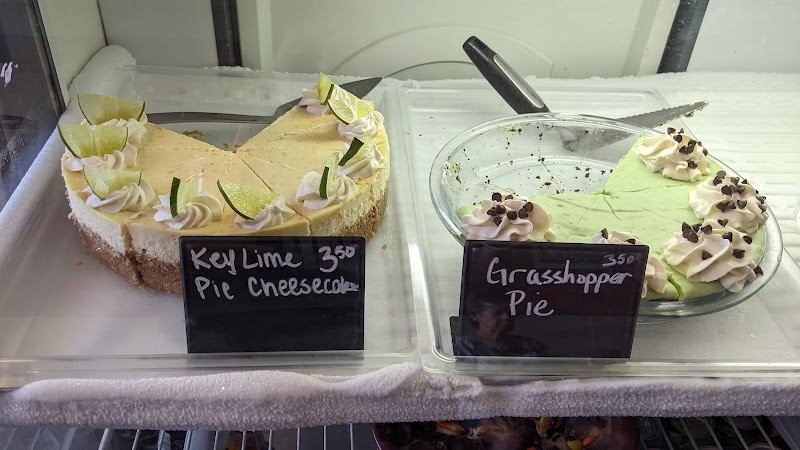 Key Lime 3.50
Pie Cheesecake
3.50
Grasshopper
Pie